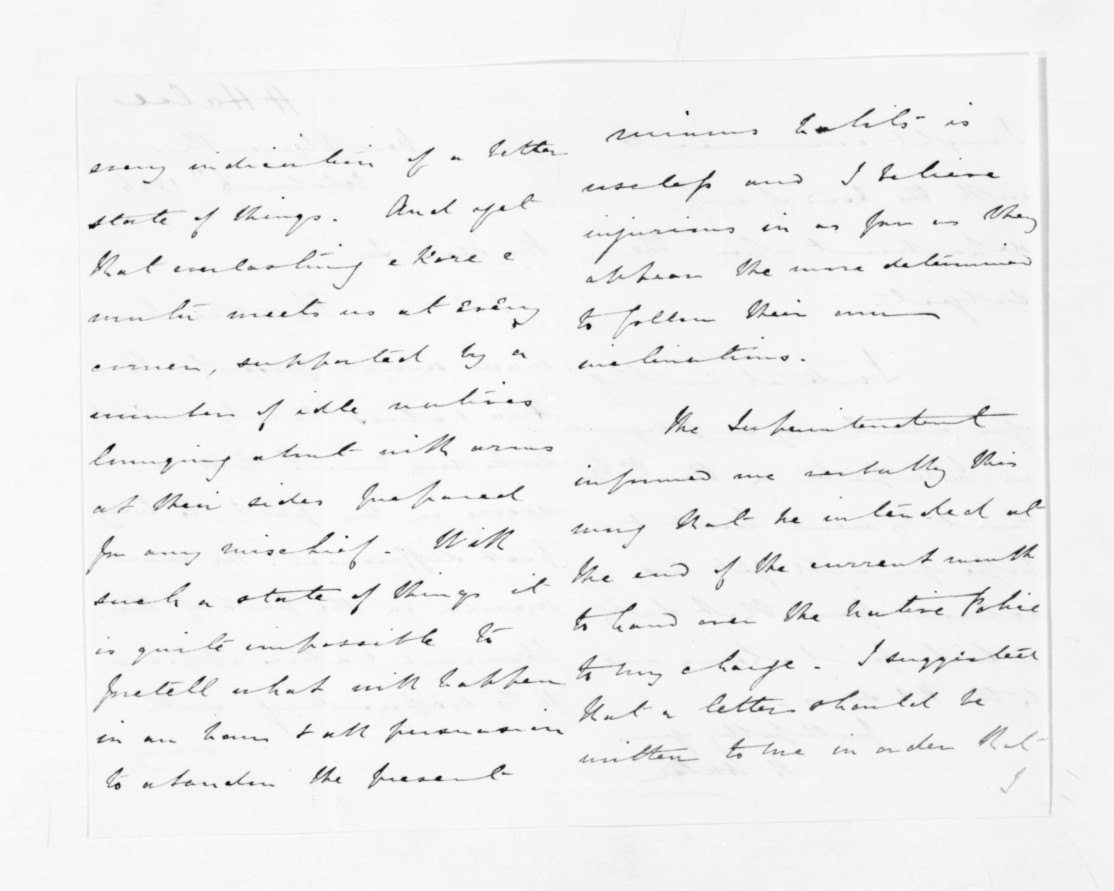 every indication of a better
state of things. And yet
that everlasting e kore e
meets us at every
corner, supported by a
number of idle natives
lounging about with arms
at their sides prepared
for any mischief. With
such a state of things it
is quite impossible to
foretell what will happen
in an hour & all persuasion
to abandon the present
habits is
useless and I believe
injurious in as far as they
appear the more determined
to follow their own
inclinations.
The Superintendent
informed me verbally this
mng that he intended at
the end of the current month
to hand over the Native Police
to my charge. I suggested
that a letter should be
written to me in order that
I